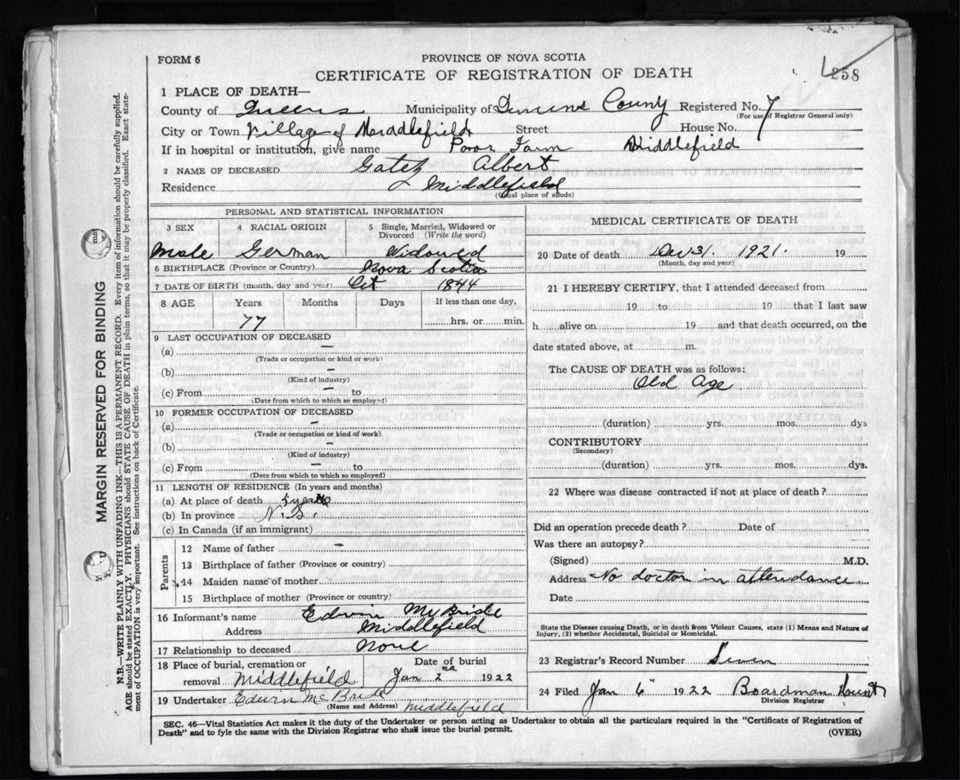 FORM 6
PROVINCE OF NOVA SCOTIA
CERTIFICATE OF REGISTRATION OF DEATH
258
1 PLACE OF DEATH—
County of Queens Municipality of County Registered No. 7
(For use of Registrar General only)
City or Town Village of Middlefield Street House No.
If in hospital or institution, give name Poor Farm Middlefield
2 NAME OF DECEASED Gatez Albert
Residence Middlefield
(Usual place of abode)
PERSONAL AND STATISTICAL INFORMATION
3 SEX 4 RACIAL ORIGIN 5 Single, Married, Widowed or Divorced (Write the word)
Male German Widowed
6 BIRTHPLACE (Province or Country) Nova Scotia
7 DATE OF BIRTH (month, day and year) Oct 1844
8 AGE Years Months Days If less than one day,
77 hrs. or min.
9 LAST OCCUPATION OF DECEASED
(a) —
(Trade or occupation or kind or work)
(b) —
(Kind of industry)
(c) From — to
(Date from which to which so employed)
10 FORMER OCCUPATION OF DECEASED
(a) —
(Trade or occupation or kind of work)
(b) —
(Kind of industry)
(c) From — to
(Date from which to which so employed)
11 LENGTH OF RESIDENCE (In years and months)
(a) At place of death 5 years
(b) In province N.S.
(c) In Canada (if an immigrant)
Parents
12 Name of father —
13 Birthplace of father (Province or country)
14 Maiden name of mother
15 Birthplace of mother (Province or country)
16 Informant's name Edwin McBride
Address Middlefield
17 Relationship to deceased None
18 Place of burial, cremation or removal Middlefield Date of burial Jan 2nd 1922
19 Undertaker Edwin McBride
(Name and Address) Middlefield
MEDICAL CERTIFICATE OF DEATH
20 Date of death Dec 31 1921. 19
(Month, day and year)
21 I HEREBY CERTIFY, that I attended deceased from
19 to 19 that I last saw
h alive on 19 and that death occurred, on the
date stated above, at m.
The CAUSE OF DEATH was as follows:
Old Age
(duration) yrs. mos. dys
CONTRIBUTORY
(Secondary)
(duration) yrs. mos. dys.
22 Where was disease contracted if not at place of death?
Did an operation precede death? Date of
Was there an autopsy?
(Signed) M.D.
Address No doctor in attendance
Date
State the Disease causing Death, or in death from Violent Causes, state (1) Means and Nature of
Injury, (2) whether Accidental, Suicidal or Homicidal.
23 Registrar's Record Number Seven
24 Filed Jan 6 1922 Boardman
Division Registrar
SEC. 46—Vital Statistics Act makes it the duty of the Undertaker or person acting as Undertaker to obtain all the particulars required in the "Certificate of Registration of
Death" and to fyle the same with the Division Registrar who shall issue the burial permit.
(OVER)
MARGIN RESERVED FOR BINDING
N.B.—WRITE PLAINLY WITH UNFADING INK—THIS IS A PERMANENT RECORD. Every item of information should be carefully supplied.
AGE should be stated EXACTLY. PHYSICIANS should STATE CAUSE OF DEATH in plain terms, so that it may be properly classified. Exact state-
ment of OCCUPATION is very important. See instructions on back of Certificate.